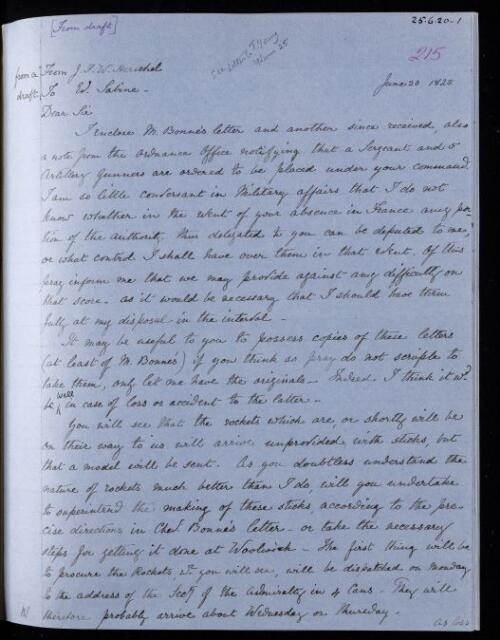 25.6.20-1
[From draft]
215
See letter to T. Young
from a
draft
From J. F. W. Herschel
June 20 1825
To E. Sabine -
Dear Sir
I enclose M. Bonne's letter and another since received, also
a note from the Ordnance Office notifying that a Sergeant and 8
Artillery Gunners are ordered to be placed under your command.
I am so little conversant in Military affairs that I do not
know whether in the event of your absence in France any por-
tion of the authority thus delegated to you can be deputed to me,
or what control I shall have over them in that event. Of this
pray inform me that we may provide against any difficulty on
that score - as it would be necessary that I should have them
fully at my disposal in the interval -
It may be useful to you to possess copies of these letters
(at least of M. Bonne's) if you think so pray do not scruple to
take them, only let me have the originals - Indeed I think it wd.
be well in case of loss or accident to the latter -
You will see that the rockets which are, or shortly will be
on their way to us will arrive unprovided with sticks, but
that a model will be sent. As you doubtless understand the
nature of rockets much better than I do, will you undertake
to superintend the making of these sticks, according to the pre-
cise directions in Chevr. Bonne's letter - or take the necessary
steps for getting it done at Woolwich - The first thing will be
to procure the Rockets, wh. you will see, will be dispatched on Monday
to the address of the Secy. of the Admiralty in 4 Cans - They will
therefore probably arrive about Wednesday or Thursday -